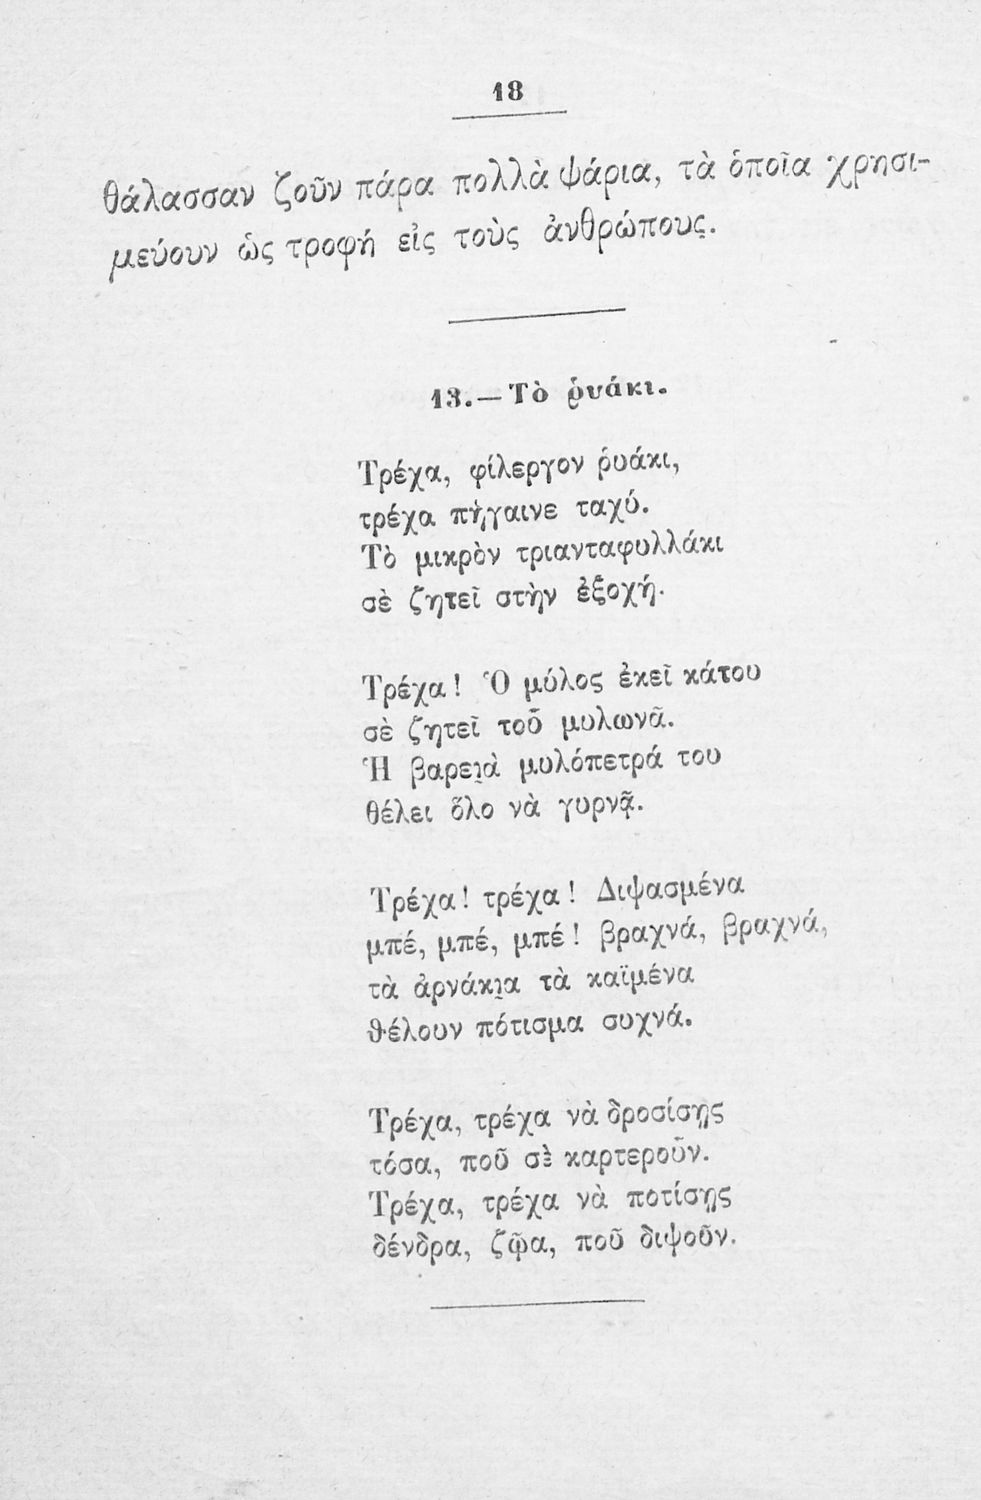 18
θάλασσαν ζοῦν πάρα πολλὰ ψάρια, τὰ ὁποῖα χρησι-
μεύουν ὡς τροφή εἰς τοὺς ἀνθρώπους.
13.—Τὸ ῥυάκι.
Τρέχα, φίλεργον ῥυάκι,
τρέχα πήγαινε ταχύ.
Τὸ μικρὸν τριανταφυλλάκι
σὲ ζητεῖ στὴν ἐξοχή.
Τρέχα! Ὁ μύλος ἐκεῖ κάτου
σὲ ζητεῖ τοῦ μυλωνᾶ.
Ἡ βαρειὰ μυλόπετρά του
θέλει ὅλο νὰ γυρνᾷ.
Τρέχα! τρέχα! Διψασμένα
μπέ, μπέ, μπέ! βραχνά, βραχνά,
τὰ ἀρνάκια τὰ καϊμένα
θέλουν πότισμα συχνά.
Τρέχα, τρέχα νὰ δροσίσῃς
τόσα, ποῦ σὲ καρτεροῦν.
Τρέχα, τρέχα νὰ ποτίσῃς
δένδρα, ζῷα, ποῦ διψοῦν.